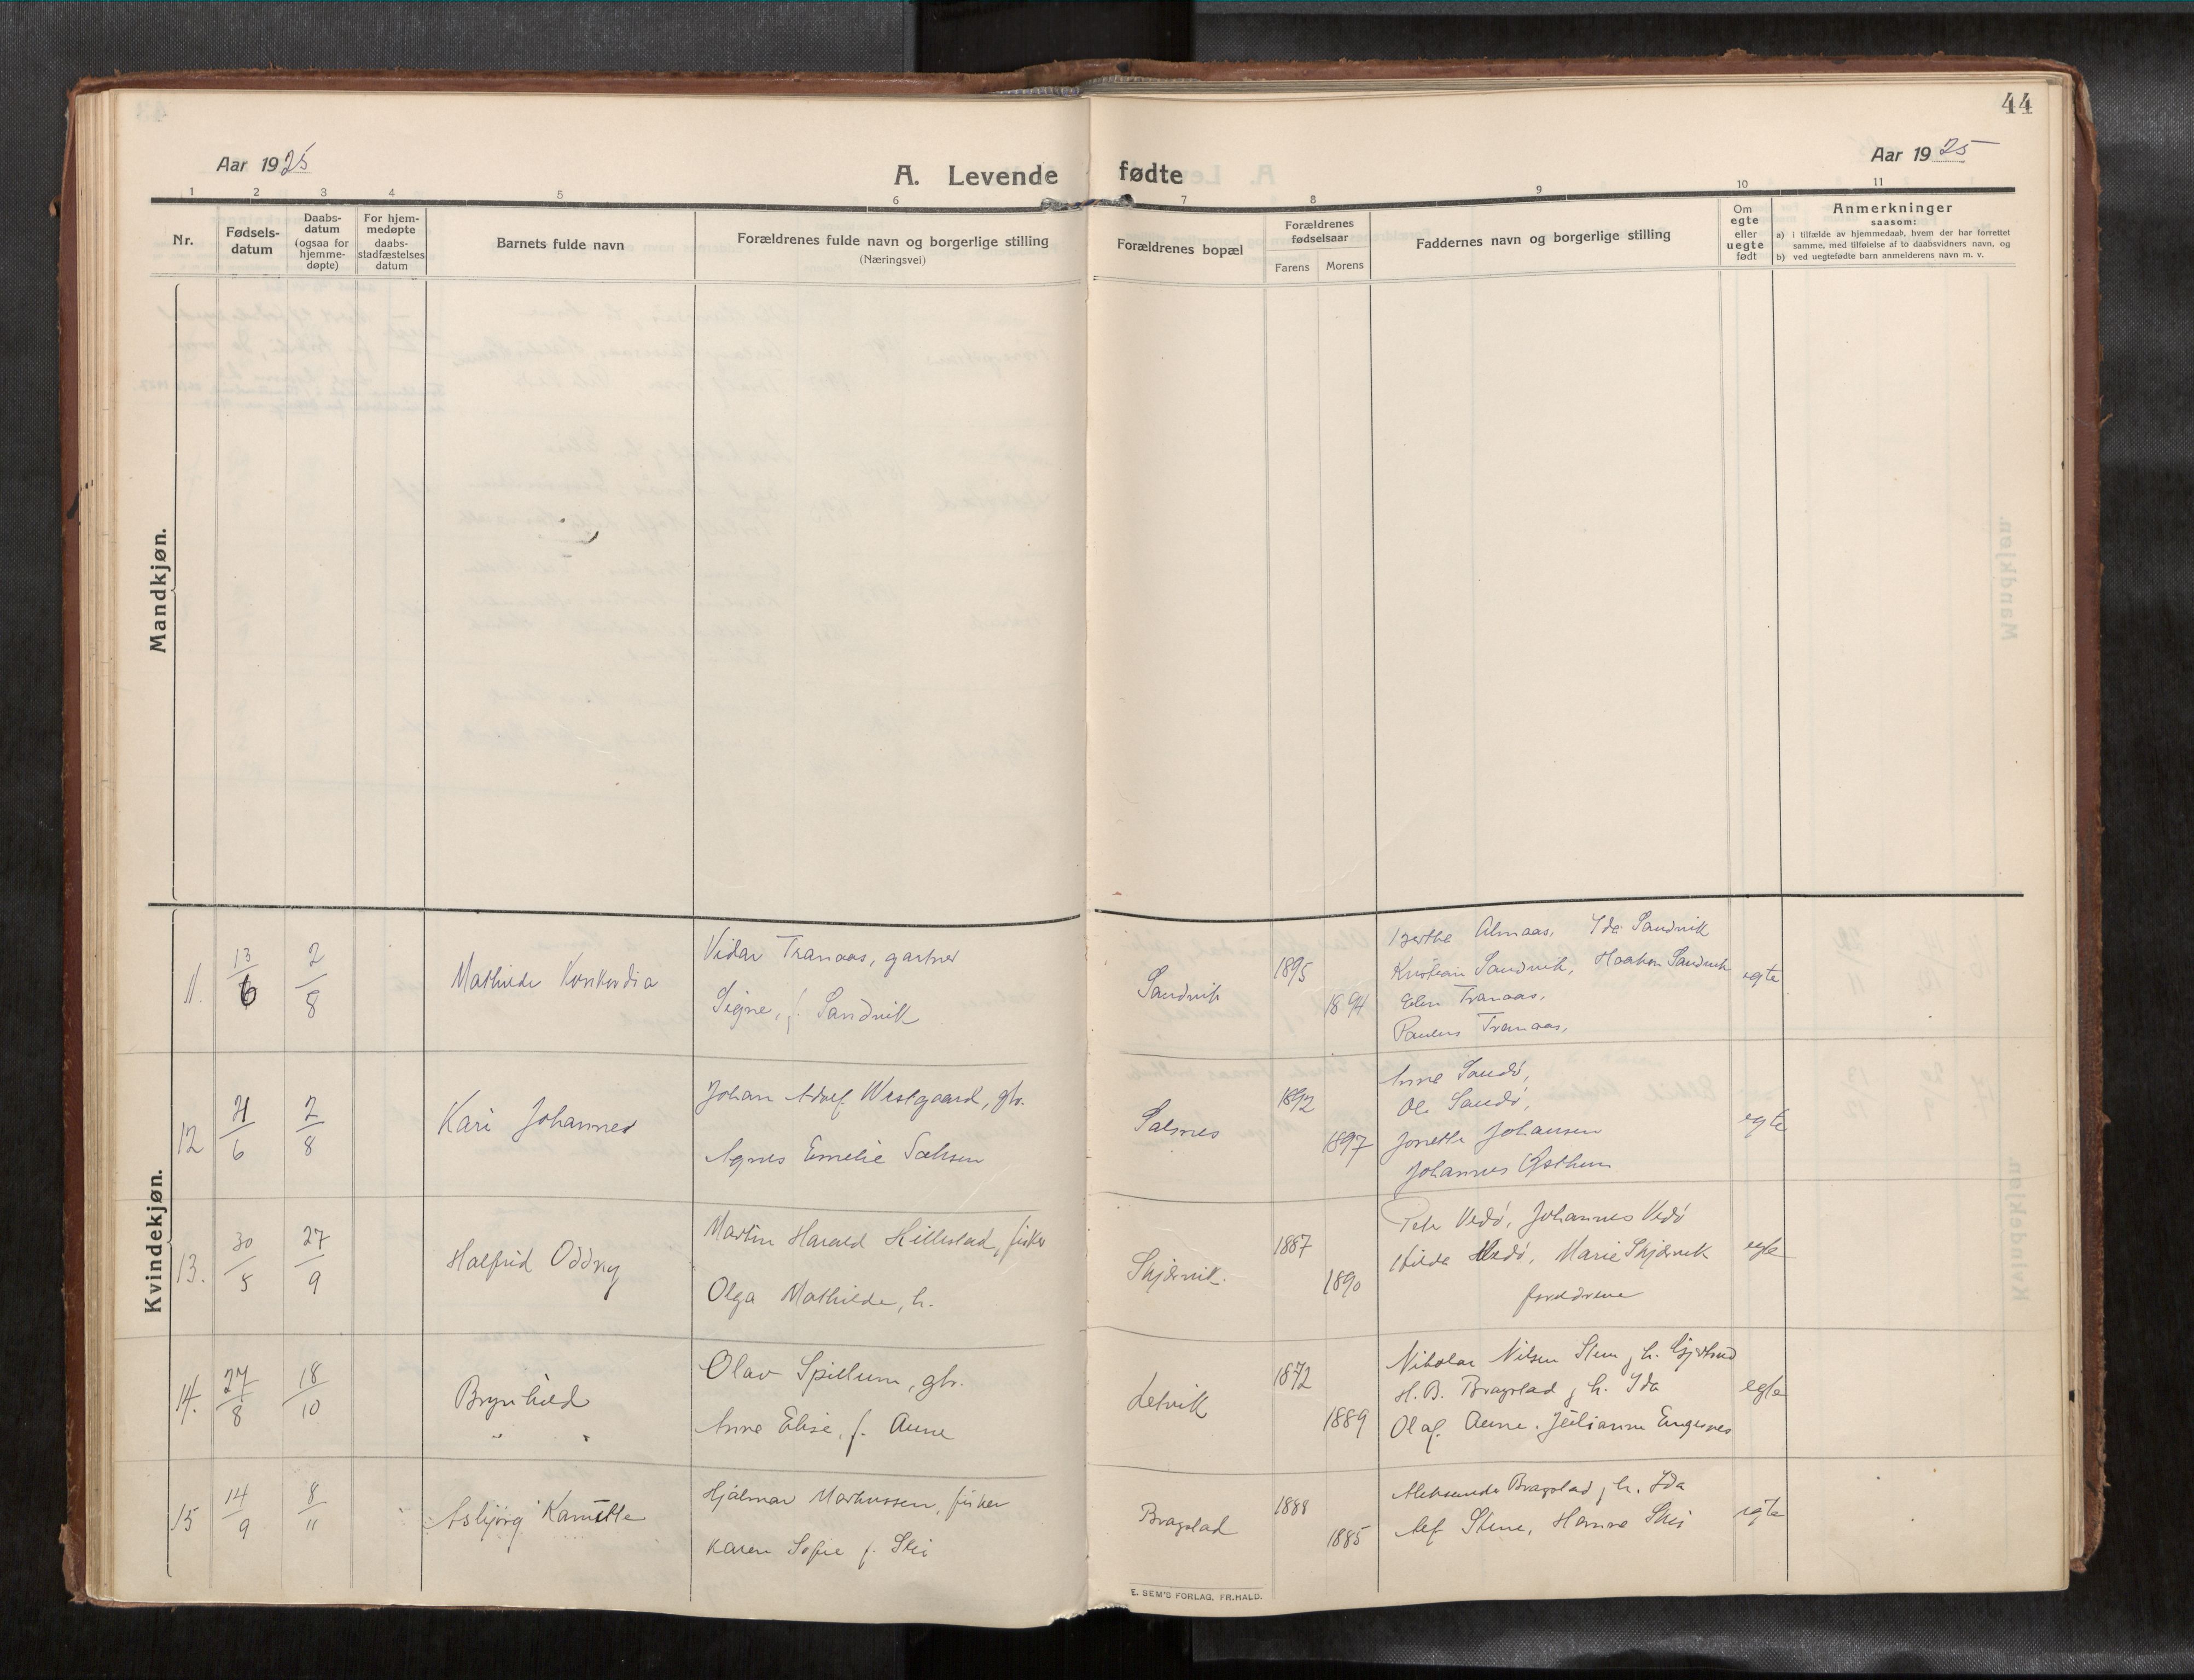 44
Aar 1925
A. Levende fødte
Aar 1925
1 2 3 4 5 6 7 8 9 10 11
Nr.
Fødsels-
datum
Daabs-
datum
(ogsaa for
hjemme-
døpte)
For hjem-
medøpte
daabs-
stadfæstelses
datum
Barnets fulde navn
Forældrenes fulde navn og borgerlige stilling
(Næringsvei)
Forældrenes bopæl
Forældrenes
fødselsaar
Farens Morens
Faddernes navn og borgerlige stilling
Om
egte
eller
uegte
født
Anmerkninger
saasom:
a) i tilfælde av hjemmedaab, hvem der har forrettet
samme, med tilføielse af to daabsvidners navn, og
b) ved uegtefødte barn anmelderens navn m. v.
Mandkjøn.
Kvindekjøn.
11. 13/6 2/8 Mathilde Konkordia
Vidar Tranaas, gartner
Signe, f. Sandvik
Sandvik 1895 1894
Berthe Almaas, Ida Sandvik
Kristian Sandvik, Haakon Sandvik
Elen Tranaas,
Tranaas,
egte
12 21/6 2/8 Kari Johannes
Johan Adolf Westgaard, gbr.
Agnes Emelie
Salsnes 1892 1897
Anne Sandø,
Ole Sandø,
Jonette Johansen
Johannes
egte
13. 30/5 27/9 Halfrid Oddny
Martin Harald Hillestad, fisker
Olga Mathilde, h.
Skjærvik. 1887 1890
Peter Vedø, Johannes Vedø
Hilda Vedø, Marie Skjærvik
forældrene
egte
14. 27/8 18/10 Brynhild
Olav Spillum, gbr.
Anne Elise, f. Aune
Letvik 1872 1889
Nikolai Nilsen Sten, h. Gjertrud
H. B. Bragstad, h. Ida
Olaf Aune. Julianne Engesnes
egte
15 14/9 8/11 Asbjørg Kamille
Hjalmar Markussen, fisker
Karen Sofie f. Skei
Bragstad 1888 1885
Aleksander Bragstad, h. Ida
Alf Stene, Hanna Skei
egte
E. SEM'S FORLAG, FR.HALD.